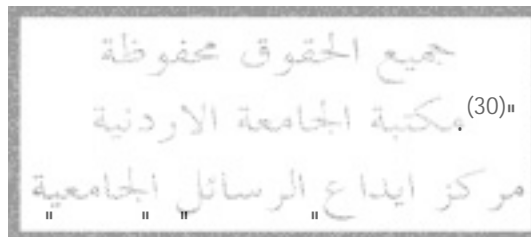 جميع الحقوق محفوظة
مكتبة الجامعة الاردنية (30)"
مركز ايداع الرسائل الجامعية
" " " "